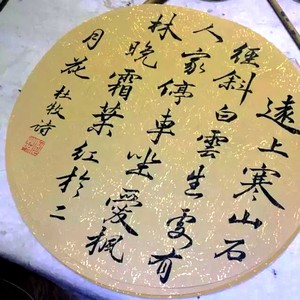 遠上寒山石
徑斜白雲生處有
人家停車坐愛楓
林晚霜葉紅於二
月花杜牧詩